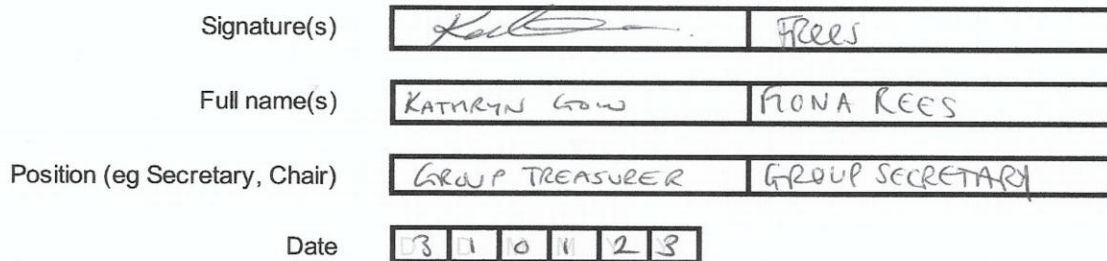 Signature(s) FRees
Full name(s) KATHRYN GOW FIONA REES
Position (eg Secretary, Chair) GROUP TREASURER GROUP SECRETARY
Date 3 1 0 1 2 3